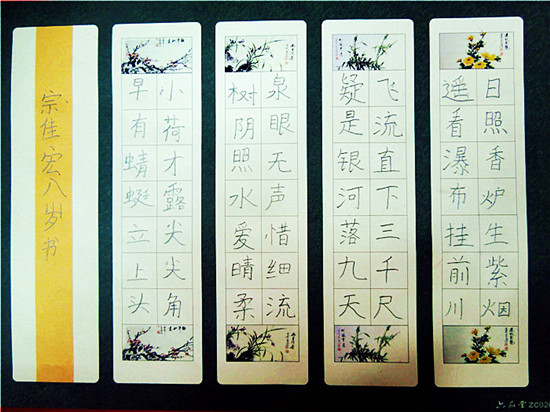 日照香炉生紫烟
遥看瀑布挂前川
飞流直下三千尺
疑是银河落九天
泉眼无声惜细流
树阴照水爱晴柔
小荷才露尖尖角
早有蜻蜓立上头
宗佳宏八岁书